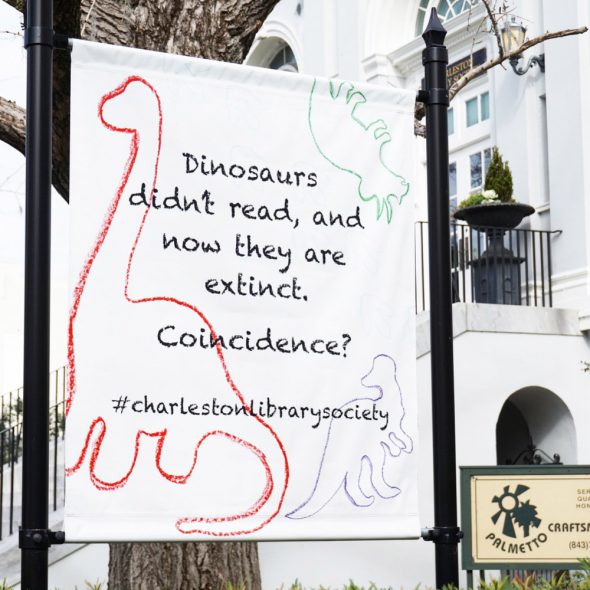 Dinosaurs
didn't read, and
now they are
extinct.
Coincidence?
#charlestonlibrarysociety
PALMETTO
CRAFTSM
(843)
SER
QUA
HON